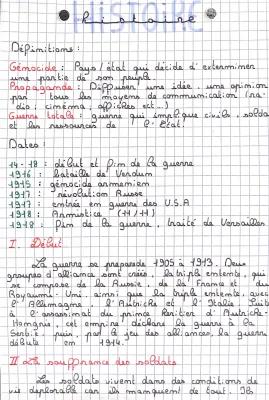 HISTOIRE
Histoire
Définitions :
Génocide : Pays / état qui décide d'exterminer
une partie de son peuple
Propagande : Diffuser une idée, une opinion
par tous les moyens de communication (ra-
dio, cinéma, affiches ect...)
Guerre totale : guerre qui implique civils, soldats
et les ressources de l'Etat.
Dates :
14-18 : début et fin de la guerre
1916 : bataille de Verdun
1915 : génocide arménien
1917 : révolution Russe
1917 : entrée en guerre des U.S.A
1918 : Armistice (11/11)
1918 : Fin de la guerre, traité de Versailles
I. Début
La guerre se prépare de 1905 à 1913. Deux
groupes d'alliance sont créés, la triple entente, qui
se compose de la Russie, de la France et du
Royaume-Uni, ainsi que la triple entente, avec
l'Allemagne, l'Autriche et l'Italie. Suite
à l'assassinat du prince héritier d'Autriche-
Hongrie, cet empire déclare la guerre à la
Serbie, puis, par le jeu des alliances, la guerre
débute en 1914.
II La souffrance des soldats
Les soldats vivent dans des conditions de
vie déplorable car ils manquent de tout. Ils